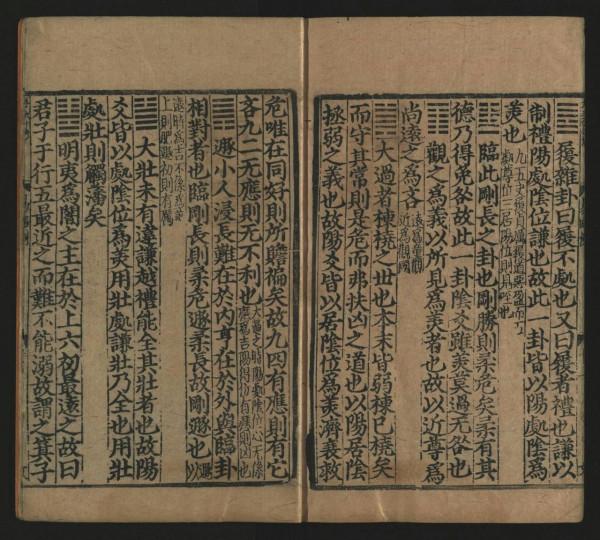 ䷉履雜卦曰履不處也又曰履者禮也謙以
制禮陽處陰位謙也故此一卦皆以陽處陰為
美也九五夬履貞厲履道惡盈而五處尊位三居陽位則見咥也
䷒臨此剛長之卦也剛勝則柔危矣柔有其
德乃得免咎故此一卦陰爻雖美莫過无咎也
䷓觀之為義以所見為美者也故以近尊為
尚遠之為吝遠為童觀近為觀國
䷛大過者棟橈之世也本末皆弱棟已橈矣
而守其常則是危而弗扶凶之道也以陽居陰
拯弱之義也故陽爻皆以居陰位為美濟衰救
危唯在同好則所贍褊矣故九四有應則有它
吝九二无應則无不利也大過之時陽處陰位心无係應為吉陽得位有應則凶也
䷠遯小人浸長難在於內亨在於外與臨卦
相對者也臨剛長則柔危遯柔長故剛遯也遯以
遠時為吉不係為美上則肥遯初則有厲
䷡大壯未有違謙越禮能全其壯者也故陽
爻皆以處陰位為美用壯處謙壯乃全也用壯
處壯則觸藩矣
䷣明夷為闇之主在於上六初最遠之故曰
君子于行五最近之而難不能溺故謂之箕子